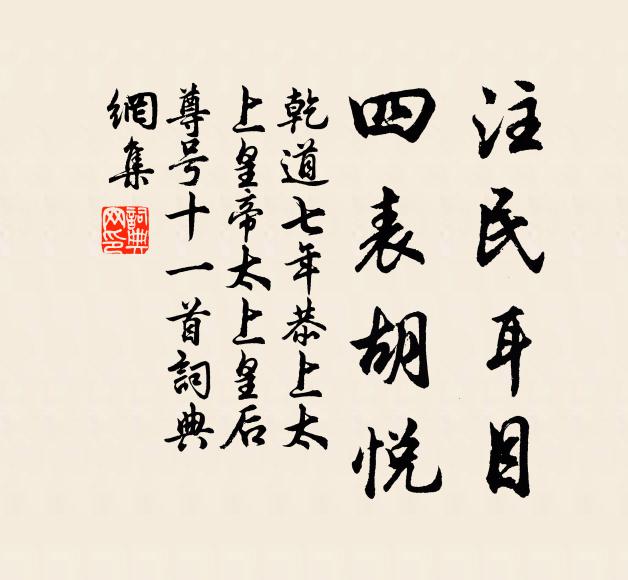 注民耳目
四表胡悅
乾道七年恭上太
上皇帝太上皇后
尊号十一首詞典
網集
詞典網印